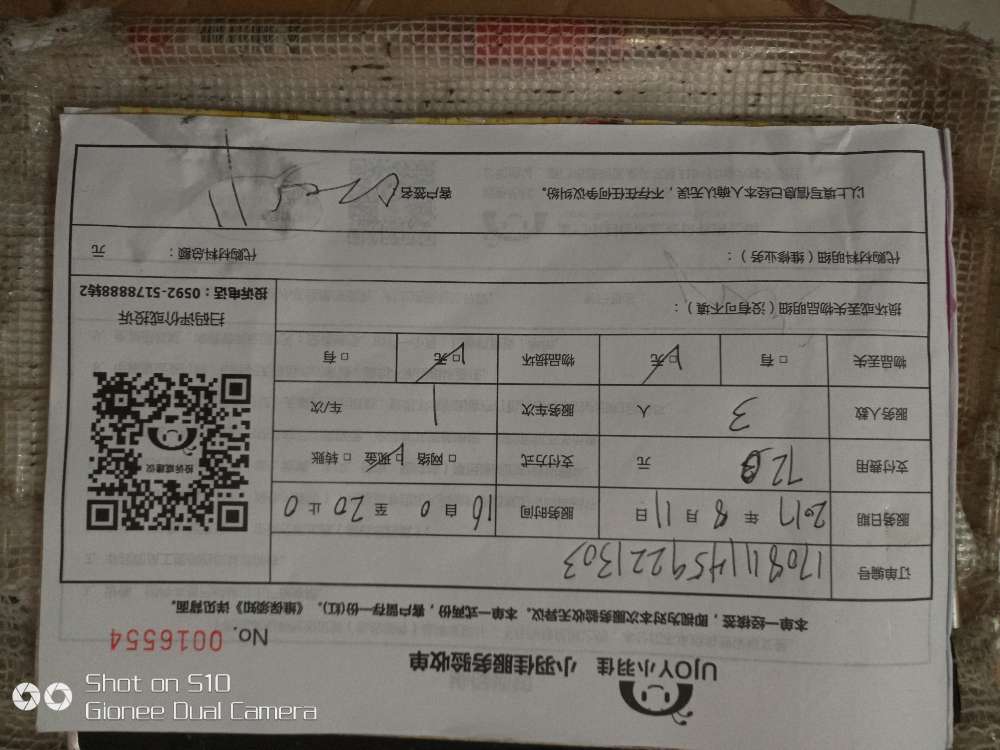 UJOY小羽佳 小羽佳服务验收单
No. 0016554
本单一经核签，即视为对本次服务验收无异议。本单一式两份，客户留存一份(红)。《维保须知》详见背面。
订单编号 17081111459221303
服务日期 2017 年 8 月 11 日 服务时间 16 自 0 至 20 止 0
支付费用 720 元 支付方式 □ 网络 □ 现金 □ 转账
服务人数 3 人 服务车次 1 车/次
物品丢失 □ 有 □ 无 物品损坏 □ 无 □ 有
投诉或建议
扫码评价或投诉
投诉电话：0592-5178888转2
损坏或丢失物品明细（没有可不填）：
代购材料明细（维修业务）： 代购材料总额： 元
以上填写信息已经本人确认无误，不存在任何争议纠纷。 客户签名
Shot on S10
Gionee Dual Camera